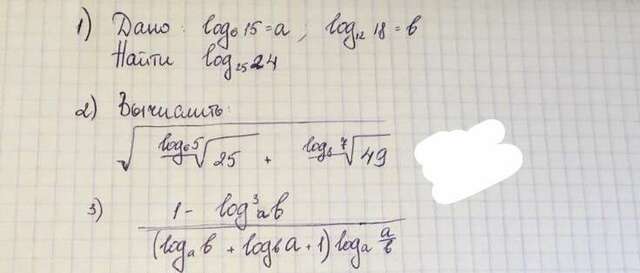 1) Дано: log₆15=a, log₁₂18=b
Найти log₂₅24
2) Вычислить:
√(ˡᵒᵍ₆⁵√25 + ˡᵒᵍ₈⁷√49)
3) (1 - log³ₐb) / ((logₐb + log_b a + 1) logₐ a/b)